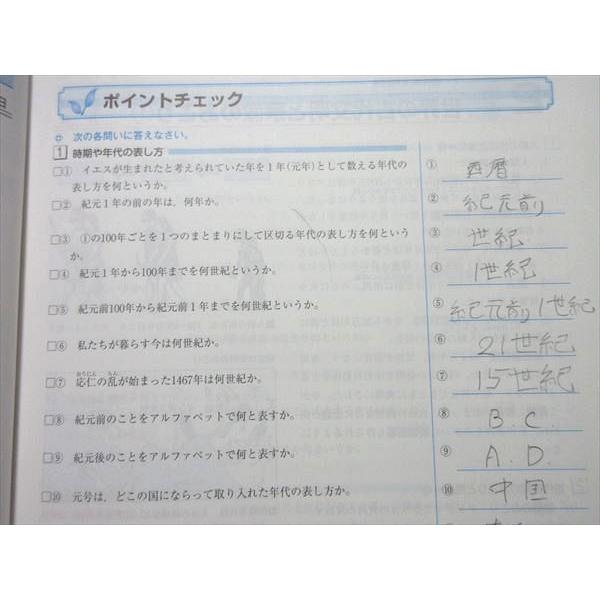 ポイントチェック
次の各問いに答えなさい。
1 時期や年代の表し方
□① イエスが生まれたと考えられていた年を1年(元年)として数える年代の
表し方を何というか。
① 西暦
□② 紀元1年の前の年は、何年か。
② 紀元前
□③ ①の100年ごとを1つのまとまりにして区切る年代の表し方を何という
か。
③ 世紀
□④ 紀元1年から100年までを何世紀というか。
④ 1世紀
□⑤ 紀元前100年から紀元前1年までを何世紀というか。
⑤ 紀元前1世紀
□⑥ 私たちが暮らす今は何世紀か。
⑥ 21世紀
おうにん らん
□⑦ 応仁の乱が始まった1467年は何世紀か。
⑦ 15世紀
□⑧ 紀元前のことをアルファベットで何と表すか。
⑧ B.C.
□⑨ 紀元後のことをアルファベットで何と表すか。
⑨ A.D.
□⑩ 元号は、どこの国にならって取り入れた年代の表し方か。
⑩ 中国